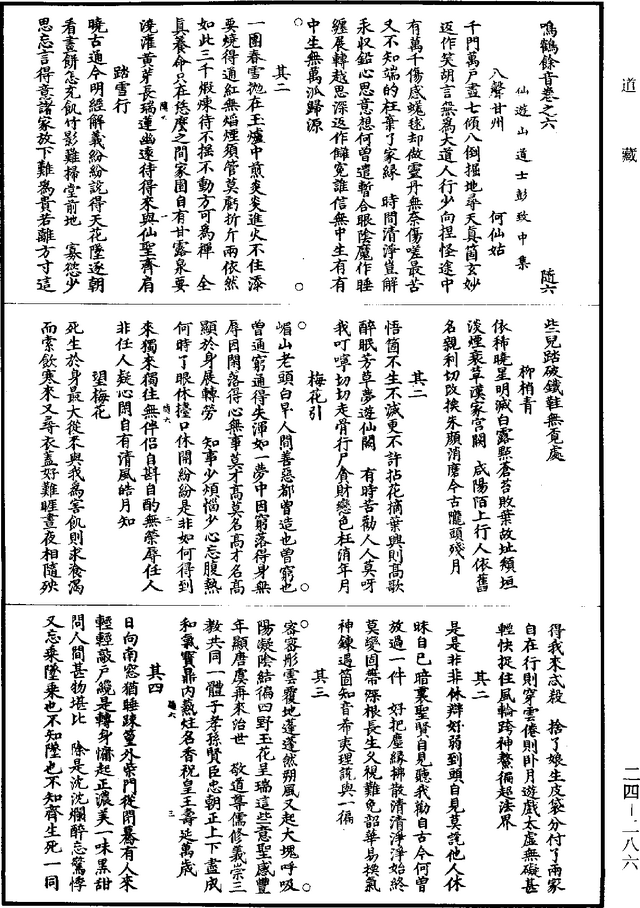 道藏
鳴鶴餘音卷之六
隨六
仙遊山道士彭致中集
八聲甘州
何仙姑
千門萬戶盡七傾八倒掘地尋天真箇玄妙
返作笑胡言無為大道人行少向捏怪途中
有萬千傷感蟻毬却做靈丹無奈傷嗟最苦
又不知端的枉棄了家緣　時間清淨豈解
汞収鉛心思意想何曾遣暫合眼陰魔作睡
纏展轉越思深返作儺寃誰信無中生有有
中生無萬派歸源
其二
一團春雪抛在玉爐中煎炎炎進火不住添
要燒得通紅無焰煙須管莫虧折斤兩依然
如此三千煅煉待不搖不動方可為禪　全
真養命只在恁麽之間家園自有甘露泉要
澆灌黃芽長瑞蓮幽遠待得來與仙聖齊肩
踏雲行
曉古通今明經解義紛紛說得天花墜逐朝
看畫餅怎充飢竹影難掃堂前地　寡慾少
思忘言得意諸家放下難為貴若離方寸這
些兒踏破鐵鞋無覓處
柳梢青
依稀曉星明滅白露點蒼苔敗葉故址頹垣
淡煙衰草漢家宮闕　咸陽陌上行人依舊
名親利切改換朱顏消磨今古隴頭殘月
其二
悟箇不生不滅更不許拈花摘葉興則高歌
醉眠芳草夢遊仙闕　有時苦勸人人莫呀
我叮嚀切切走骨行尸貪財戀色枉消年月
梅花引
嵋山老頭白早人間善惡都曾造也曾窮也
曾通窮通得失渾如一夢中因窮落得身無
辱因閑落得心無事莫才高莫名高才名高
顯於身展轉勞　知事少煩惱少心忘腹熱
何時了眼休擡口休開紛紛是非如何得到
來獨來獨往無伴侶自斟自酌無榮辱任人
非任人疑心閑自有清風皓月知
望梅花
死生於身最大從來與我為害飢則求飡渴
而索飲寒來又尋衣蓋好難睚晝夜相隨殃
得我來忒殺　捨了娘生皮袋分付了兩家
自在行則穿雲倦則卧月遊戲太虛無礙甚
輕快捉住風輪跨神鰲徧超法界
其二
是是非非休辯好弱到頭自見莫說他人休
昧自己暗裏聖賢自見聽我勸自古今何曾
放過一件　好把塵緣拂散清清淨淨始終
莫變固蔕深根長生又視難免韶華易換氣
神鍊遇箇知音希夷理說與一徧
其三
密密彤雲覆地蓬蓬然朔風又起大塊呼吸
陽凝陰結徧四野玉花呈瑞這些意聖感豐
年顯唐虞再來治世　敬道尊儒修義崇三
教共同一體子孝孫賢臣忠朝正上下盡成
和氣寶鼎內爇炷名香祝皇王壽延萬歲
其四
日向南窓猶睡踈篁外柴門從閉驀有人來
輕輕敲戶纔是轉身慵起正濃美一味黑甜
問人間甚物堪比　除是沈沈爛醉忘驚悸
又忘乘墜乘也不知墜也不知齊生死一同
二四－二八六